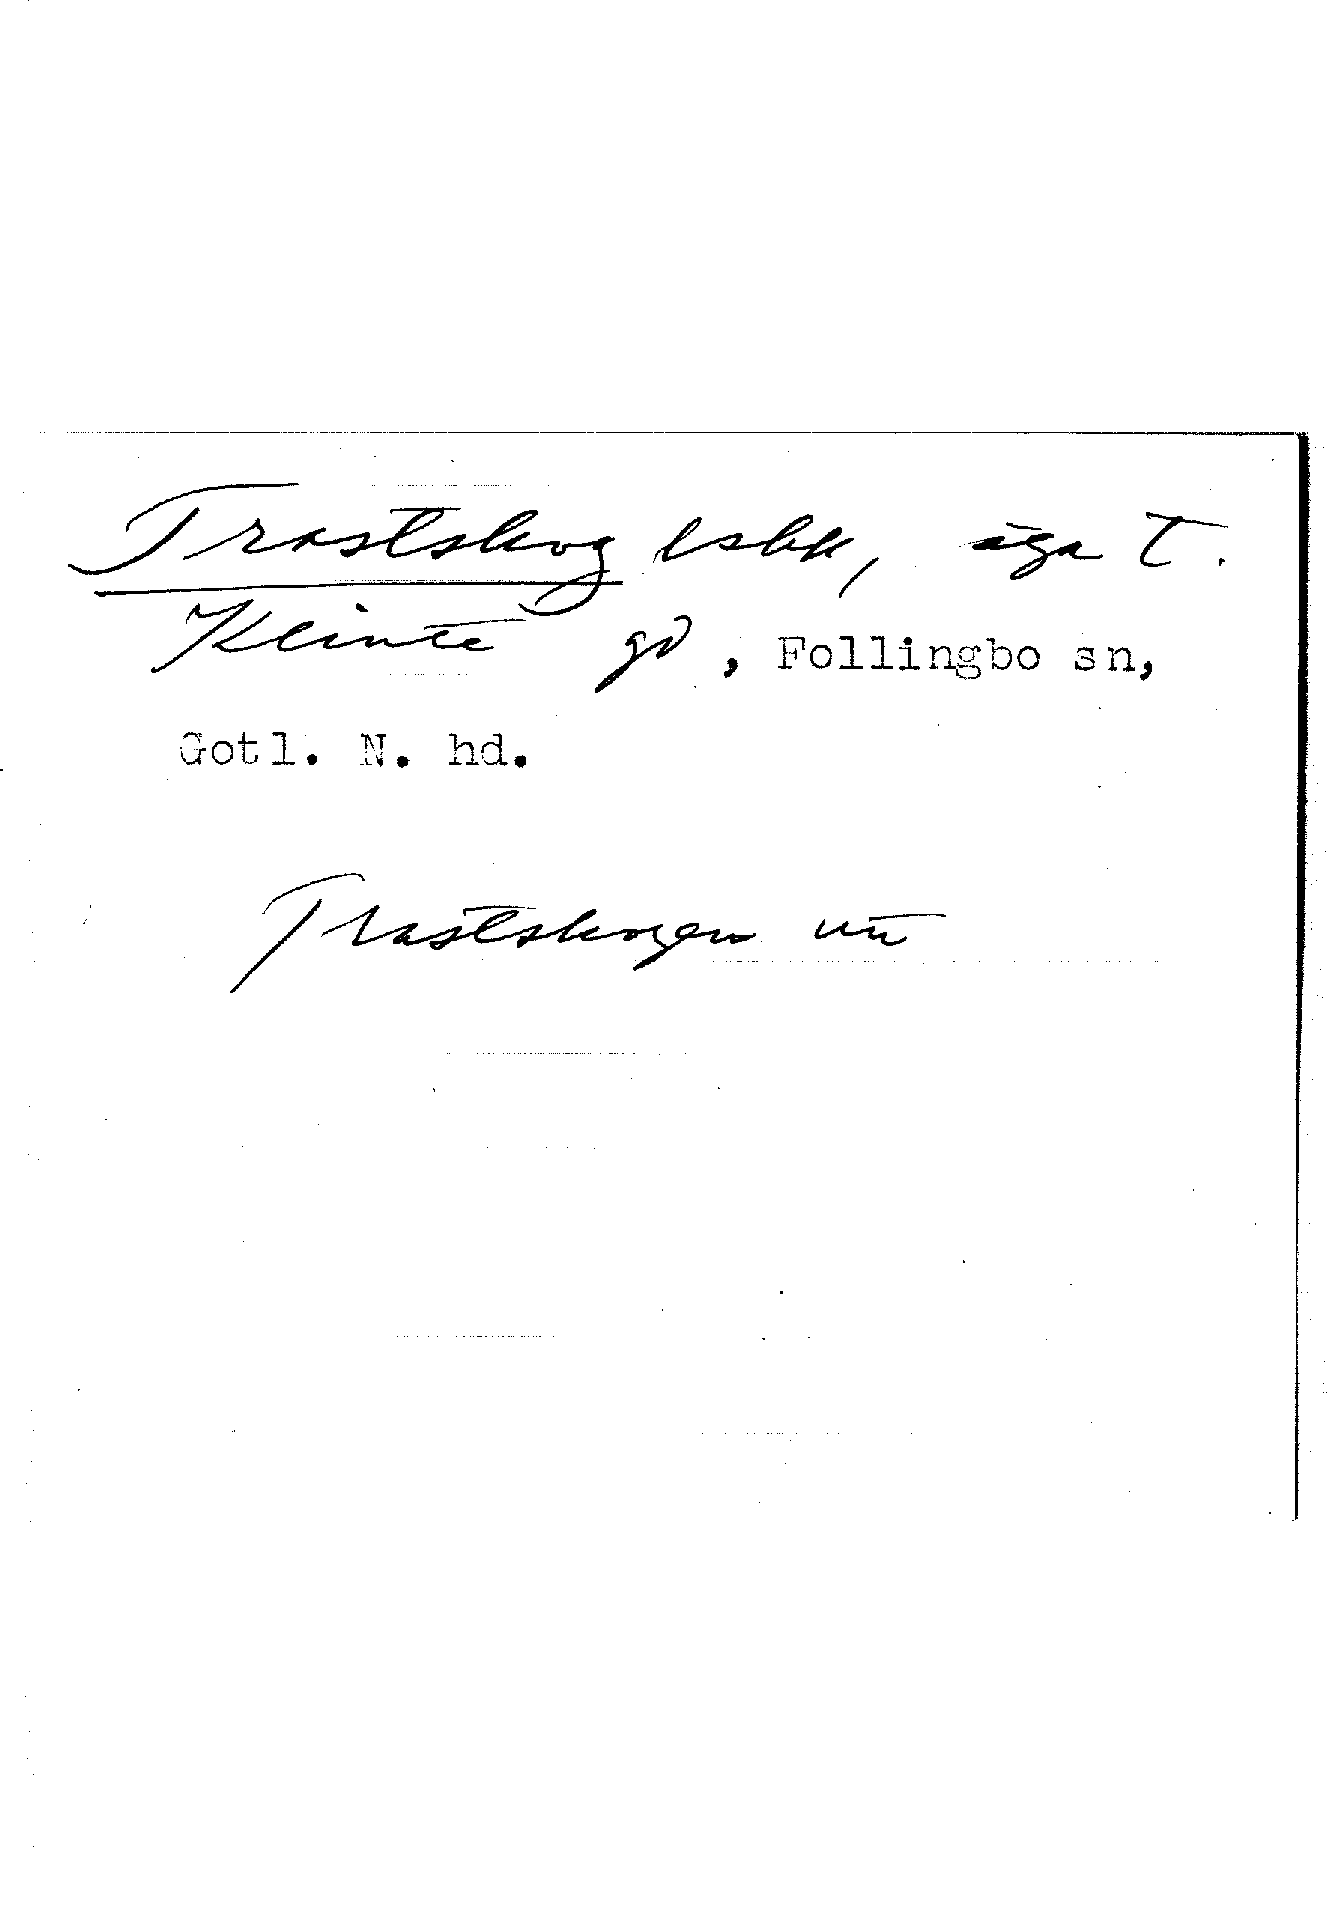 Trastskog lshk, äga t.
Klinte gd, Follingbo sn,
Gotl. N. hd.
Trastskogen